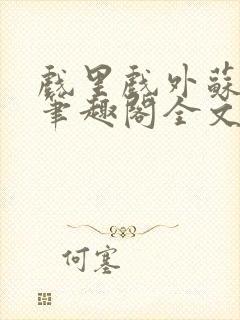 戲里戲外蘇
筆趣閣全文
何塞